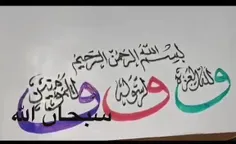 بسم الله الرحمن الرحيم
ولله العزة ولرسوله وللمؤمنين
سبحان الله